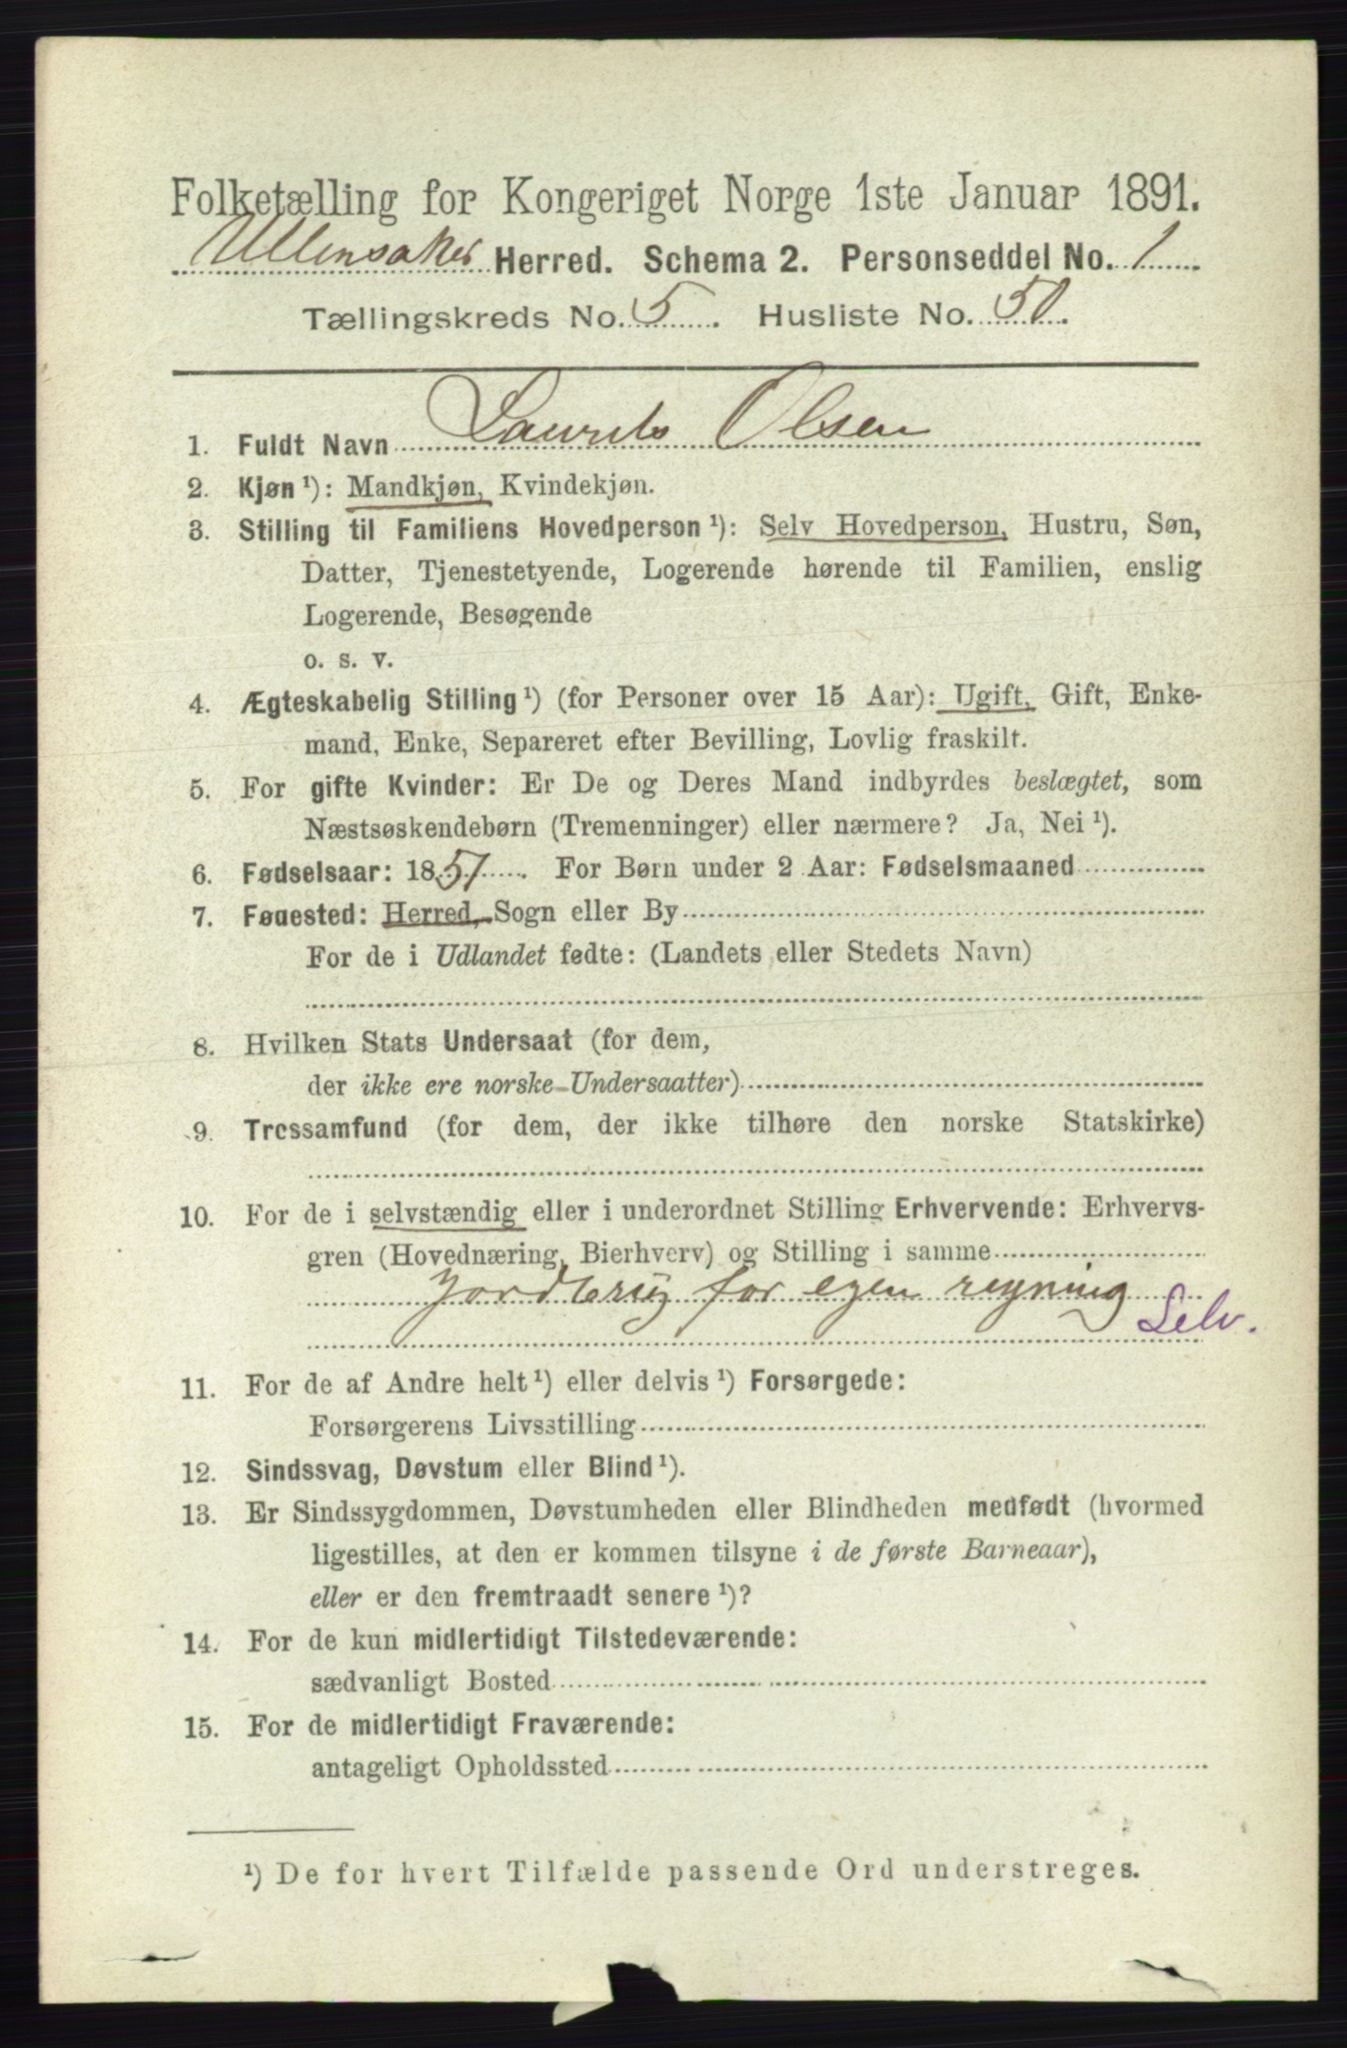 Folketælling for Kongeriget Norge 1ste Januar 1891.
Ullensaker Herred. Schema 2. Personseddel No. 1
Tællingskreds No. 5. Husliste No. 50.
1. Fuldt Navn Laurits Olsen
2. Kjøn ¹): Mandkjøn, Kvindekjøn.
3. Stilling til Familiens Hovedperson ¹): Selv Hovedperson, Hustru, Søn,
Datter, Tjenestetyende, Logerende hørende til Familien, enslig
Logerende, Besøgende
o. s. v.
4. Ægteskabelig Stilling ¹) (for Personer over 15 Aar): Ugift, Gift, Enke-
mand, Enke, Separeret efter Bevilling, Lovlig fraskilt.
5. For gifte Kvinder: Er De og Deres Mand indbyrdes beslægtet, som
Næstsøskendebørn (Tremenninger) eller nærmere? Ja, Nei ¹).
6. Fødselsaar: 1851. For Børn under 2 Aar: Fødselsmaaned
7. Føuested: Herred, Sogn eller By
For de i Udlandet fødte: (Landets eller Stedets Navn)
8. Hvilken Stats Undersaat (for dem,
der ikke ere norske Undersaatter)
9. Trossamfund (for dem, der ikke tilhøre den norske Statskirke)
10. For de i selvstændig eller i underordnet Stilling Erhvervende: Erhvervs-
gren (Hovednæring, Bierhverv) og Stilling i samme
Jordbrug for egen regning
Selv.
11. For de af Andre helt ¹) eller delvis ¹) Forsørgede:
Forsørgerens Livsstilling
12. Sindssvag, Døvstum eller Blind ¹).
13. Er Sindssygdommen, Døvstumheden eller Blindheden medfødt (hvormed
ligestilles, at den er kommen tilsyne i de første Barneaar),
eller er den fremtraadt senere ¹)?
14. For de kun midlertidigt Tilstedeværende:
sædvanligt Bosted
15. For de midlertidigt Fraværende:
antageligt Opholdssted
¹) De for hvert Tilfælde passende Ord understreges.